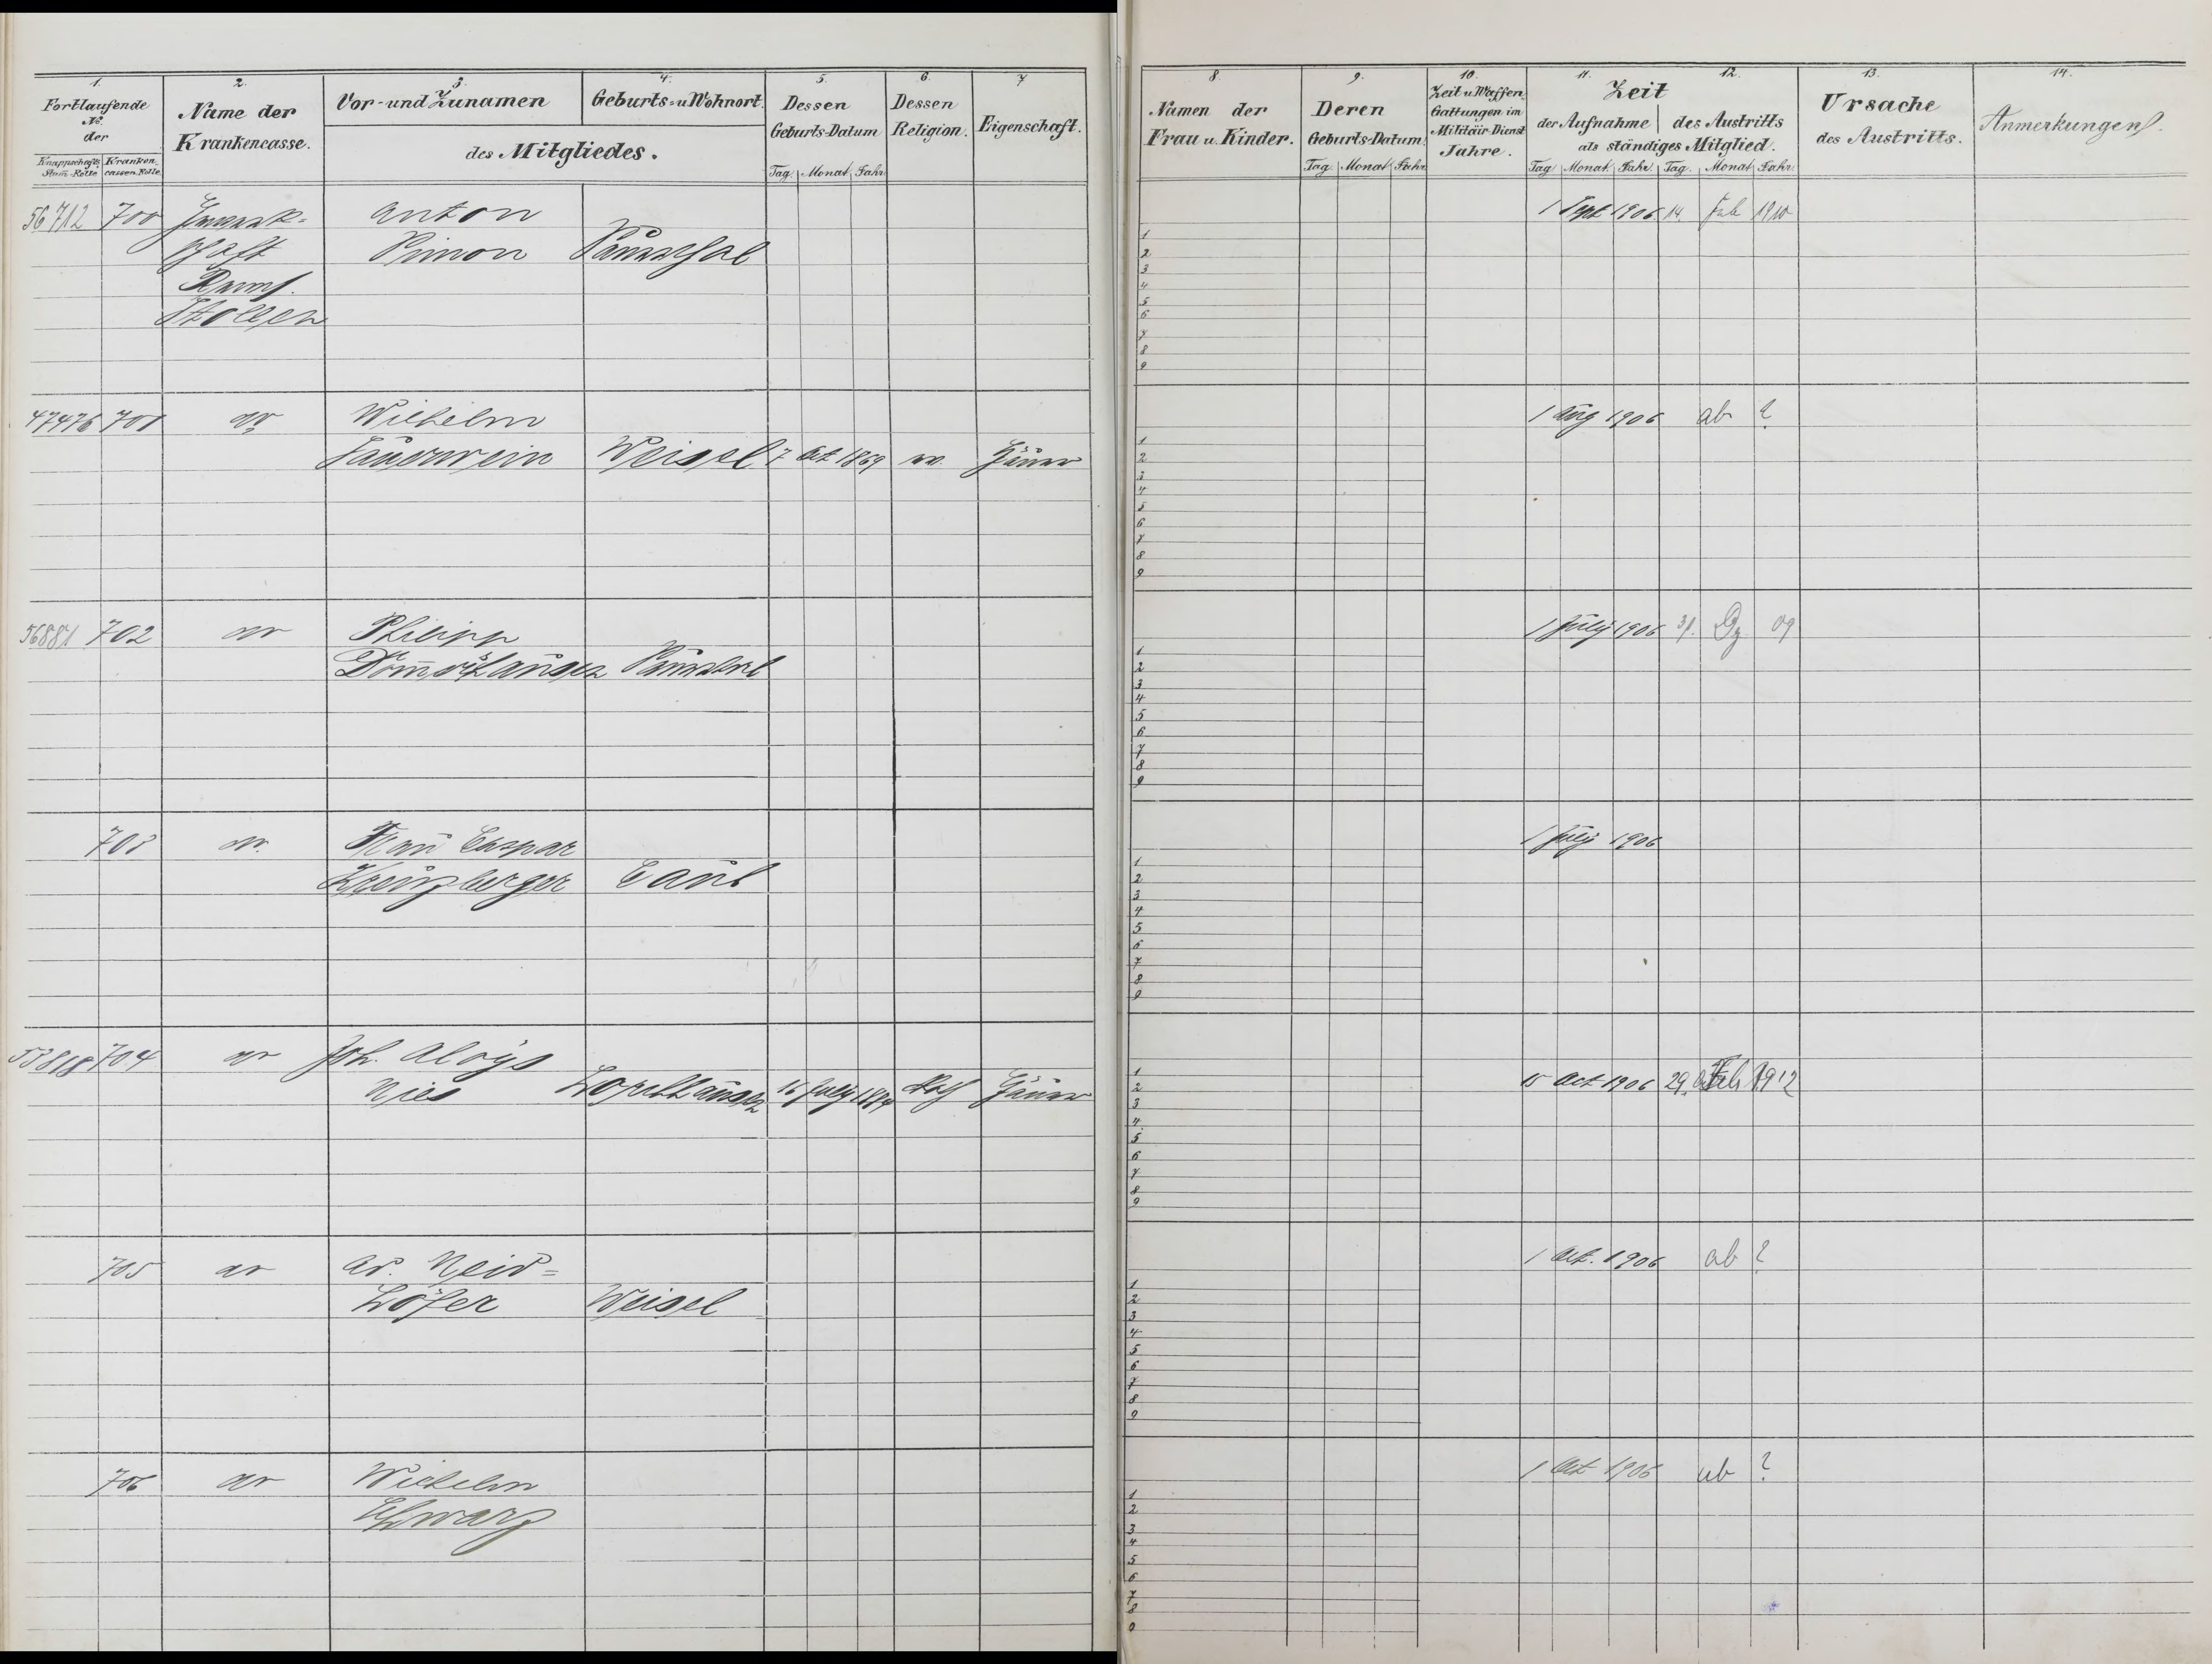 1. 2. 3. 4. 5. 6. 7
Fortlaufende No. der
Knappschafts Stam̄-Rolle Kranken-cassen-Rolle
Name der Krankencasse.
Vor- und Zunamen
Geburts- u Wohnort.
des Mitgliedes.
Dessen Geburts-Datum
Tag. Monat. Jahr.
Dessen Religion.
Eigenschaft.
56712 700 Anton
Simon Sauerthal
Stollen
47476 701 Wilhelm
Sauerwein Weisel 7 Oct 1869 ev. Häuer
56881 702 Philipp
703 Caspar
Kreuzberger Caub
53818 704 Joh. Aloys
Nies 16 July Kath Häuer
705 Ad. Neid=
höfer Weisel
706 Wilhelm
Schwarz
8. 9. 10. 11. 12. 13. 14.
Namen der Frau u. Kinder.
Deren Geburts-Datum
Tag. Monat Jahr.
Zeit u Waffen Gattungen im Militair-Dienst Jahre.
Zeit
der Aufnahme des Austritts
als ständiges Mitglied.
Tag. Monat. Jahr. Tag. Monat. Jahr.
Ursache des Austritts.
Anmerkungen.
1 Sept 1906 14. Feb 1910
1
2
3
4
5
6
7
8
9
1 Aug 1906 ab ?
1
2
3
4
5
6
7
8
9
1 July 1906 31. Dz 09
1
2
3
4
5
6
7
8
9
1 July 1906
1
2
3
4
5
6
7
8
9
15 Oct 1906 29. Feb 1912
1
2
3
4
5
6
7
8
9
1 Oct. 1906 ab ?
1
2
3
4
5
6
7
8
9
1 Oct 1906 ab ?
1
2
3
4
5
6
7
8
9